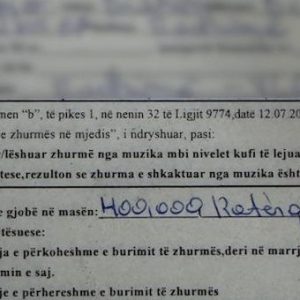 men "b", të pikes 1, në nenin 32 të Ligjit 9774,date 12.07.20
e zhurmës në mjedis", i ndryshuar, pasi:
/lëshuar zhurmë nga muzika mbi nivelet kufi të lejua
tese,rezulton se zhurma e shkaktuar nga muzika ësht
e gjobë në masën: 400,000 Katër
tësuese:
ja e përkoheshme e burimit të zhurmës,deri në marrj
min e saj.
e përhereshme e burimit të zhurmës